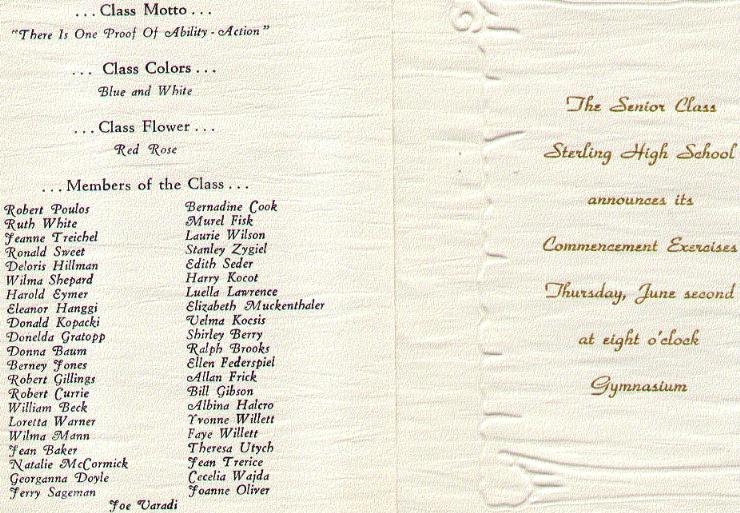 ...Class Motto...
"There Is One Proof Of Ability - Action"
...Class Colors...
Blue and White
...Class Flower...
Red Rose
...Members of the Class...
Robert Poulos
Ruth White
Jeanne Treichel
Ronald Sweet
Deloris Hillman
Wilma Shepard
Harold Eymer
Eleanor Hanggi
Donald Kopacki
Donelda Gratopp
Donna Baum
Berney Jones
Robert Gillings
Robert Currie
William Beck
Loretta Warner
Wilma Mann
Jean Baker
Natalie McCormick
Georganna Doyle
Jerry Sageman
Bernadine Cook
Murel Fisk
Laurie Wilson
Stanley Zygiel
Edith Seder
Harry Kocot
Luella Lawrence
Elizabeth Muckenthaler
Velma Kocsis
Shirley Berry
Ralph Brooks
Ellen Federspiel
Allan Frick
Bill Gibson
Albina Halcro
Yvonne Willett
Faye Willett
Theresa Utych
Jean Trerice
Cecelia Wajda
Joanne Oliver
Joe Varadi
The Senior Class
Sterling High School
announces its
Commencement Exercises
Thursday, June second
at eight o'clock
Gymnasium